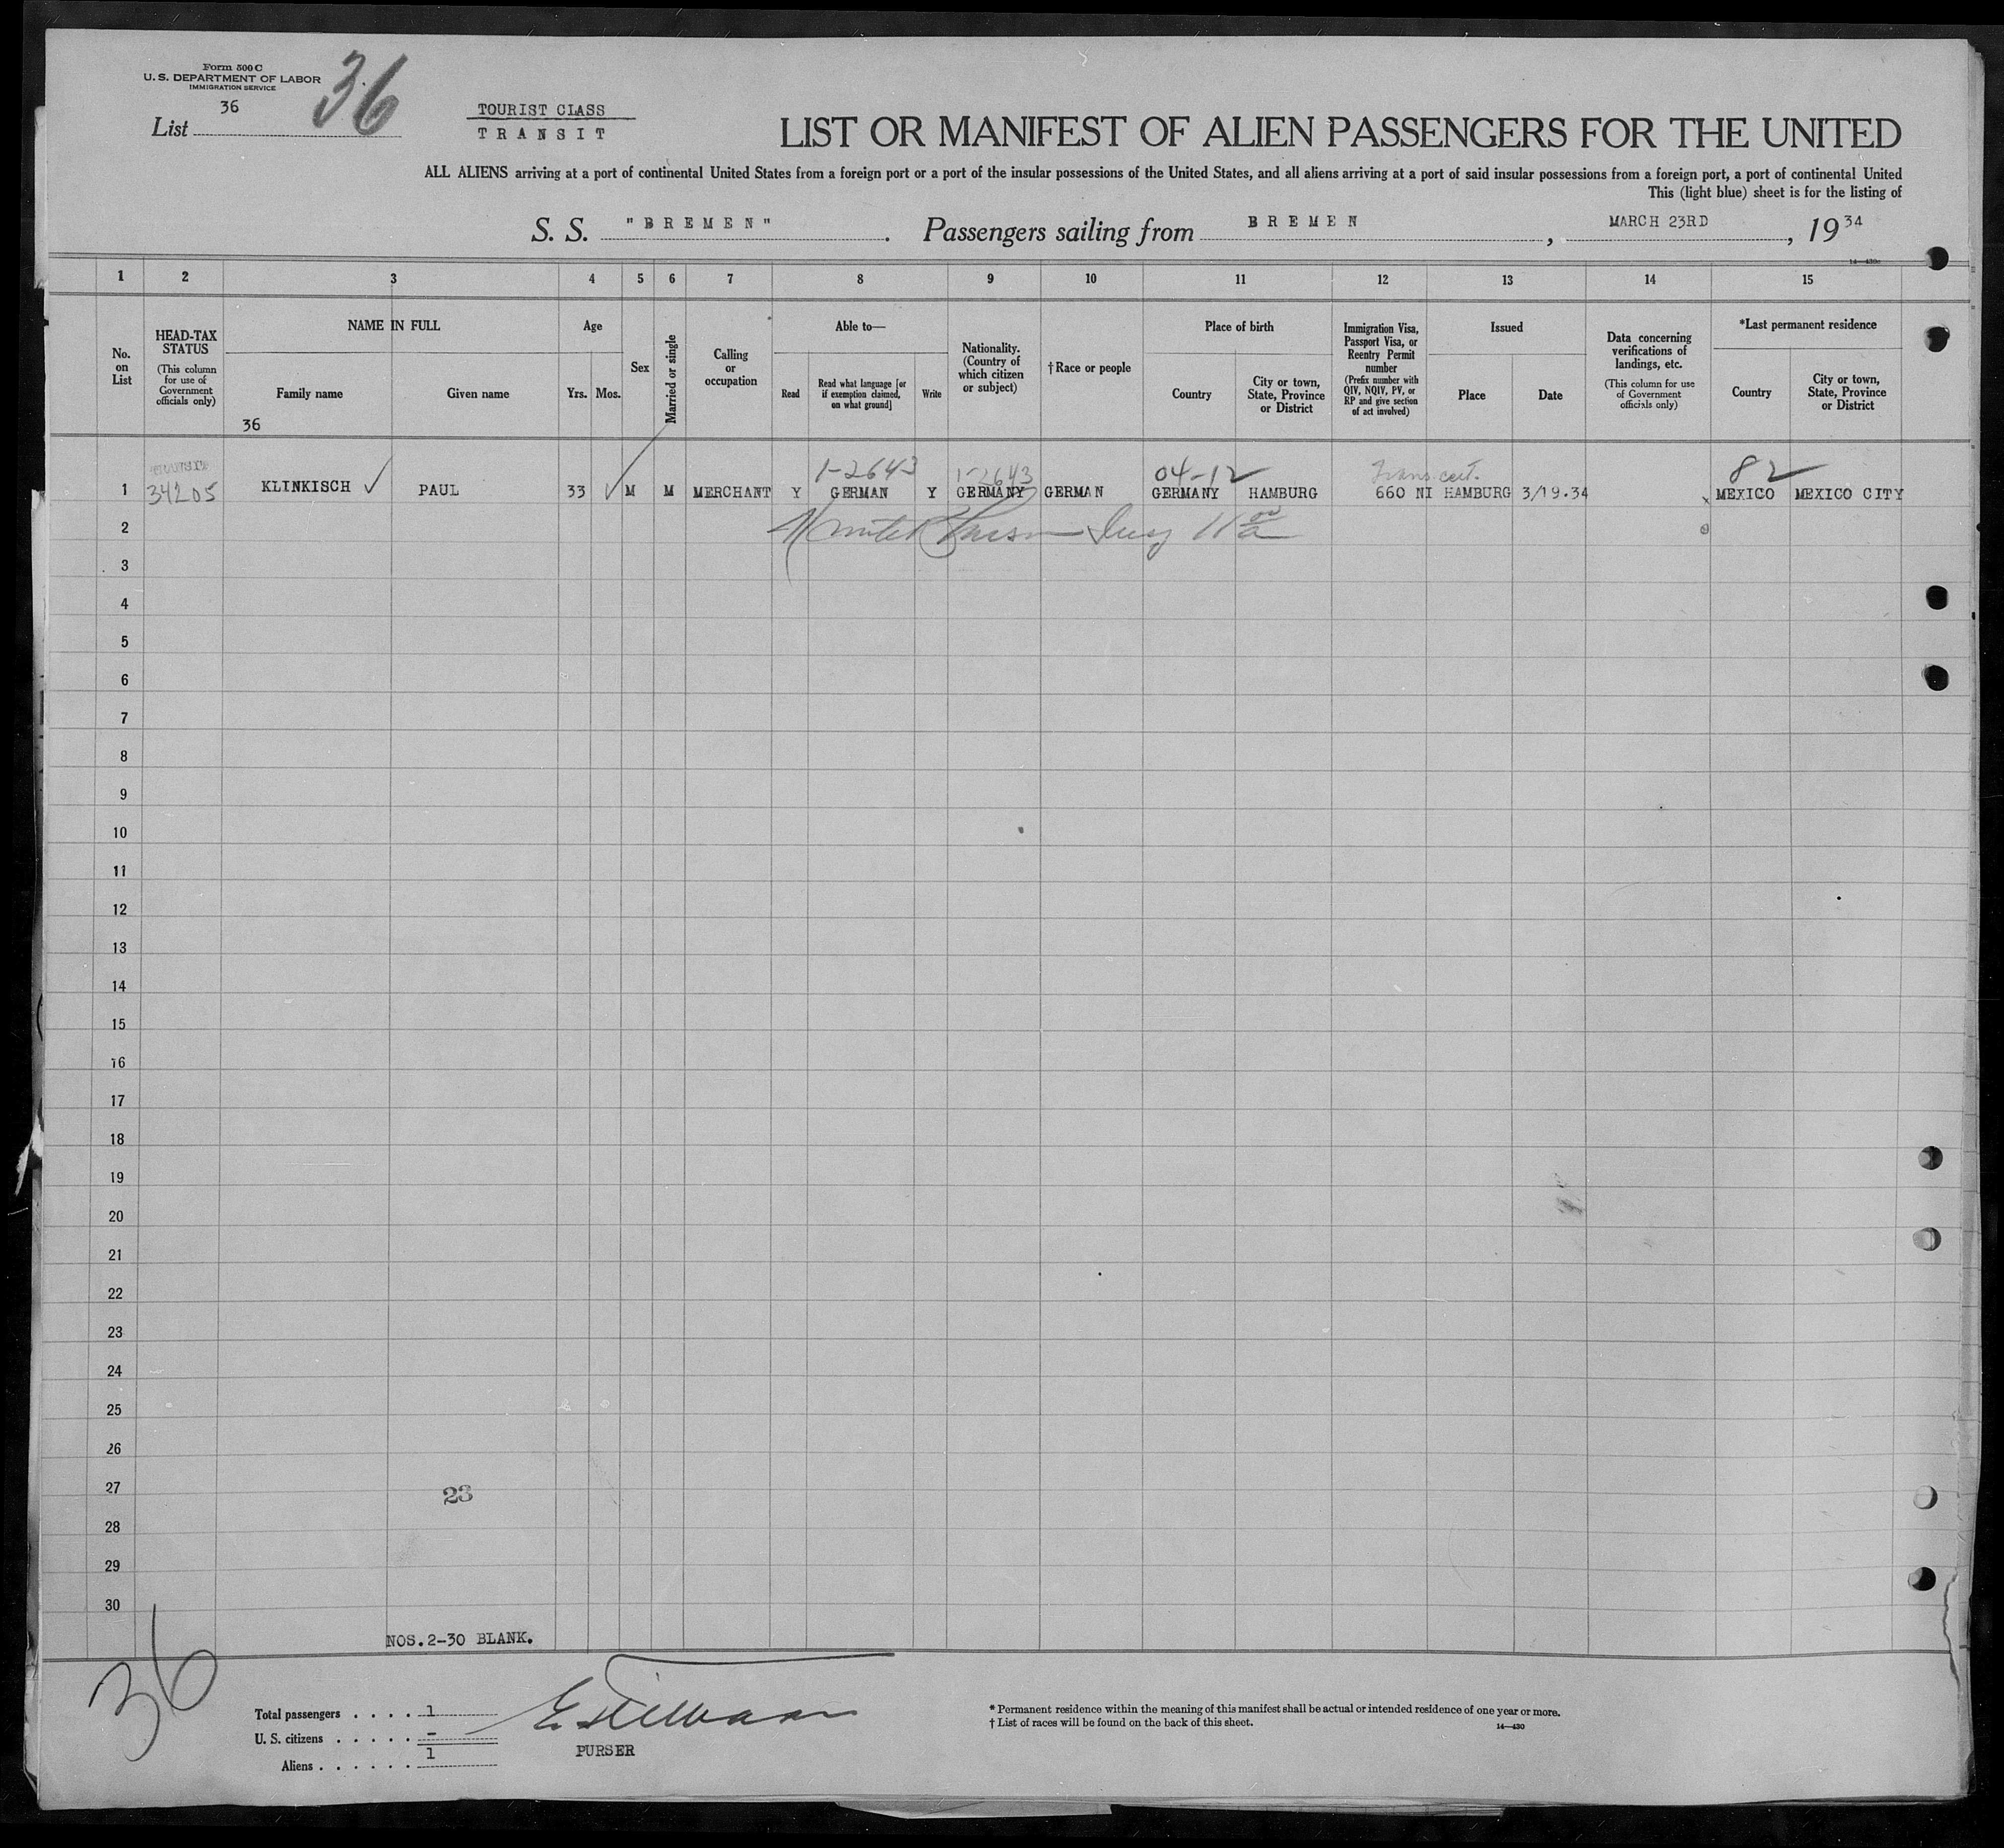 Form 500 C
U. S. DEPARTMENT OF LABOR
IMMIGRATION SERVICE
36
List
36
TOURIST CLASS
TRANSIT
LIST OR MANIFEST OF ALIEN PASSENGERS FOR THE UNITED
ALL ALIENS arriving at a port of continental United States from a foreign port or a port of the insular possessions of the United States, and all aliens arriving at a port of said insular possessions from a foreign port, a port of continental United
This (light blue) sheet is for the listing of
S. S. "BREMEN". Passengers sailing from BREMEN, MARCH 23RD, 19 34
1 2 3 4 5 6 7 8 9 10 11 12 13 14 15
No. on List
HEAD-TAX STATUS
(This column for use of Government officials only)
NAME IN FULL
Family name
Given name
36
Age
Yrs. Mos.
Sex
Married or single
Calling or occupation
Able to—
Read
Read what language [or if exemption claimed, on what ground]
Write
Nationality. (Country of which citizen or subject)
† Race or people
Place of birth
Country
City or town, State, Province or District
Immigration Visa, Passport Visa, or Reentry Permit number
(Prefix number with QIV, NQIV, PV, or RP and give section of act involved)
Issued
Place
Date
Data concerning verifications of landings, etc.
(This column for use of Government officials only)
*Last permanent residence
Country
City or town, State, Province or District
1-2643 1-2643 04-12 Trans cert. 82
1 34205 KLINKISCH PAUL 33 M M MERCHANT Y GERMAN Y GERMANY GERMAN GERMANY HAMBURG 660 NI HAMBURG 3/19.34 x MEXICO MEXICO CITY
2
3
4
5
6
7
8
9
10
11
12
13
14
15
16
17
18
19
20
21
22
23
24
25
26
27
23
28
29
30
NOS.2-30 BLANK.
36
Total passengers . . . . 1
U. S. citizens . . . . . –
Aliens . . . . . . 1
PURSER
* Permanent residence within the meaning of this manifest shall be actual or intended residence of one year or more.
† List of races will be found on the back of this sheet.
14—430